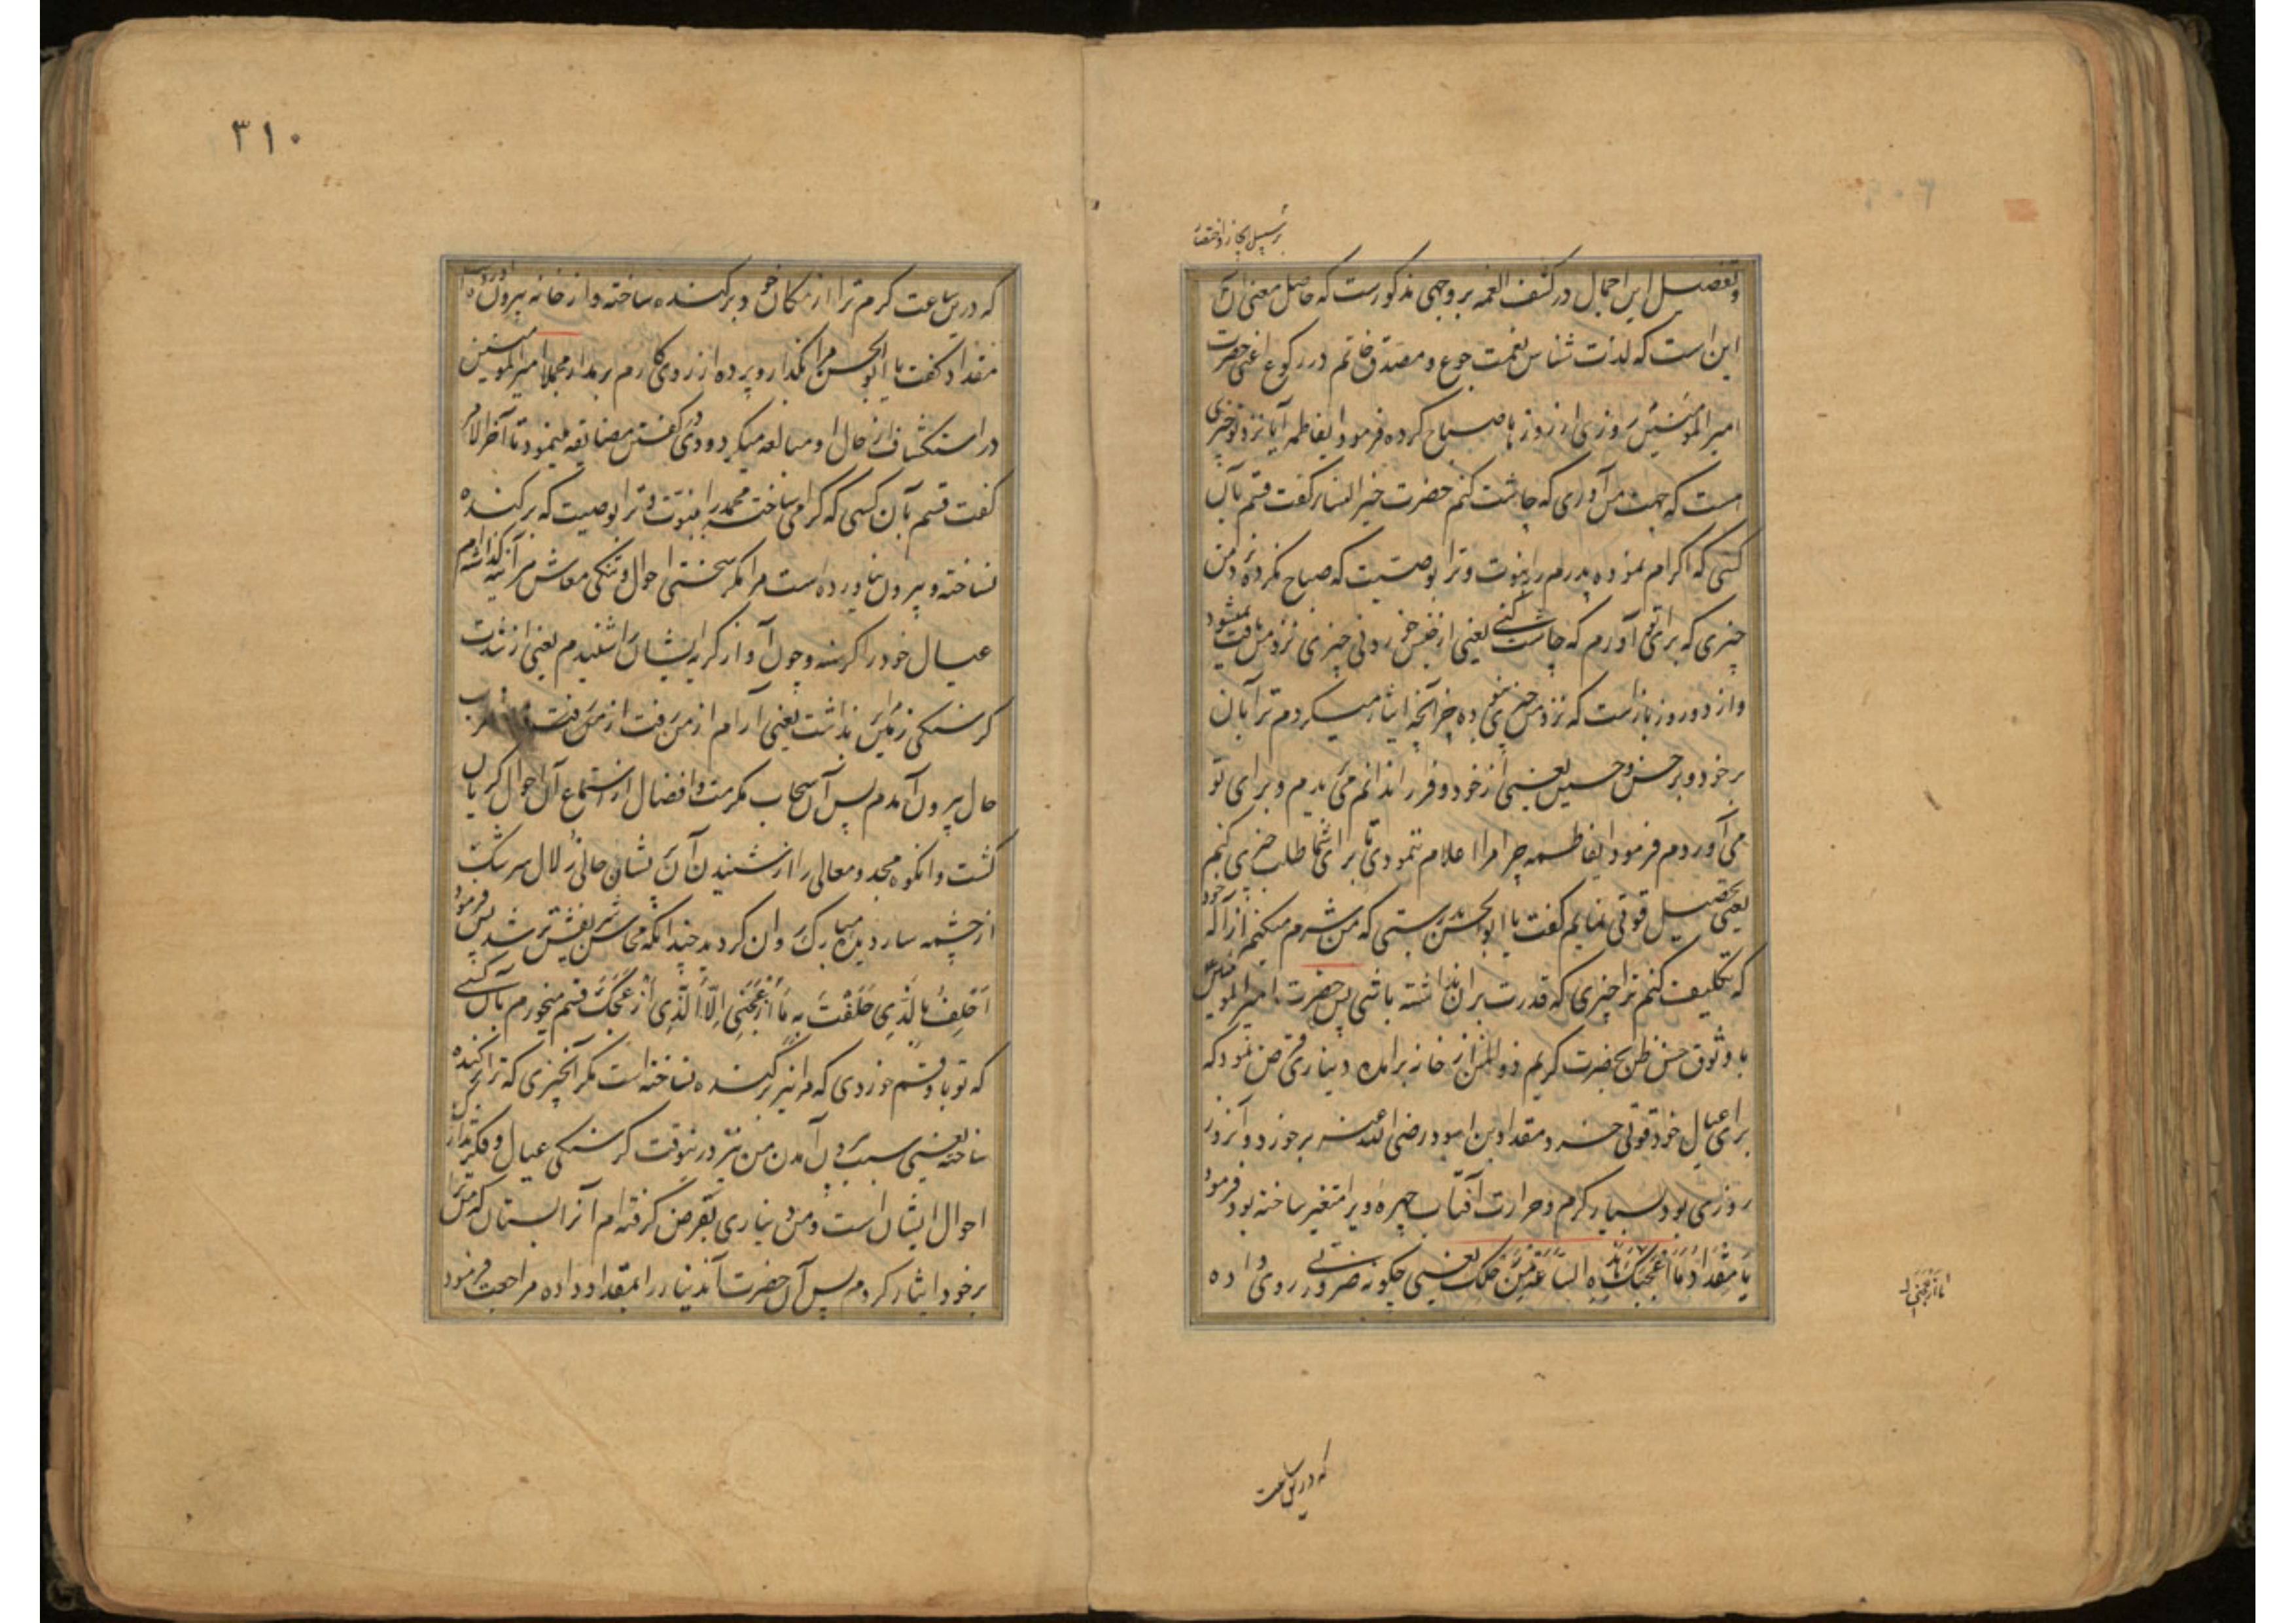 بر سبیل ایجاز و اختصار
و تفصیل این اجمال در کشف الغمه بر وجهی مذکورست که حاصل معنی آن
این است که لذت شناس نعمت جوع و مصدق خاتم در رکوع اعنی حضرت
امیر المؤمنین روزی از روزها صباح کرده فرمود ایفاطمه آیا نزد تو چیزی
هست که جهت من آوری که چاشت کنم حضرت خیر النسا گفت قسم بآن
کسی که اکرام نموده پدرم را بنبوت و ترا بوصیت که صباح نکرده نزد من
چیزی که برای تو آورم که چاشت کنی یعنی از جنس خوردنی چیزی نزد من یافت نمیشود
و از دو روز بازست که نزد من چیزی نبوده جز آنچه ایثار میکردم ترا بآن
بر خود و بر حسن و حسین یعنی از خود و فرزندانم می بریدم و برای تو
می آوردم فرمود ایفاطمه چرا مرا اعلام ننمودی تا برای شما طلب چیزی کنم
یعنی تحصیل قوتی نمایم گفت یا ابو الحسن بدرستی که من شرم میکنم از اله خود
که تکلیف کنم ترا چیزی که قدرت بران نداشته باشی پس حضرت امیر المومنین
با وثوق حسن ظن بحضرت کریم ذو المنن از خانه برامده دیناری قرض نمود که
برای عیال خود قوتی خرد و مقداد بن اسود رضی الله عنه برخورد و آنروز
روزی بود بسیار گرم و حرارت آفتاب چهره ویرا متغیر ساخته بود فرمود
یَا مِقْدَادُ مَا أَزْعَجَكَ هَذِهِ السَّاعَةَ مِنْ رَحْلِكَ یعنی چگونه ضرورتی روی داده
ما ازعجنی الا
که درین ساعت
۳۱۰
که درین ساعت گرم ترا از مکان خود برکنده ساخته و از خانه بیرون آورده است
مقداد گفت یا ابو الحسن مرا بگذار و پرده از روی کارم برمدار مجملا امیر المومنین
در استکشاف از حال او مبالغه میکرد و وی در گفتن مضایقه مینمود تا آخر الامر
گفت قسم بآن کسی که گرامی ساخت محمد را بنبوت و ترا بوصیت که برکنده
نساخته و بیرون نیاورده است مرا مگر سختی احوال و تنگی معاش هر آینه گذاشته ام
عیال خود را گرسنه و چون آواز گریه ایشان را شنیدم یعنی از شدت
گرسنگی زمین برنداشت یعنی آرام از من رفت از من رفت
حال بیرون آمدم پس آن سحاب مکرمت و افضال از استماع آن احوال گریان
گشت و انکوه مجد و معالی را از شنیدن آن پریشان حالی زلال سرشک
از چشمه سار دیده مبارک روان گردید چندانکه محاسن شریفش تر شد پس فرمود
اَحْلِفُ بِالَّذِی حَلَفْتَ بِهِ مَا أَزْعَجَنِی اِلَّا الَّذِی أَزْعَجَكَ قسم میخورم بآن کسی
که تو باو قسم خوردی که مرا نیز برکنده نساخته است مگر آنچیزی که ترا برکنده
ساخته یعنی سبب برون آمدن من نیز درینوقت گرسنگی عیال و فکر
احوال ایشان است و من دیناری بقرض گرفته ام آنرا بستان که من ترا
بر خود ایثار کردم پس آن حضرت آندینار را بمقداد داده مراجعت فرمود